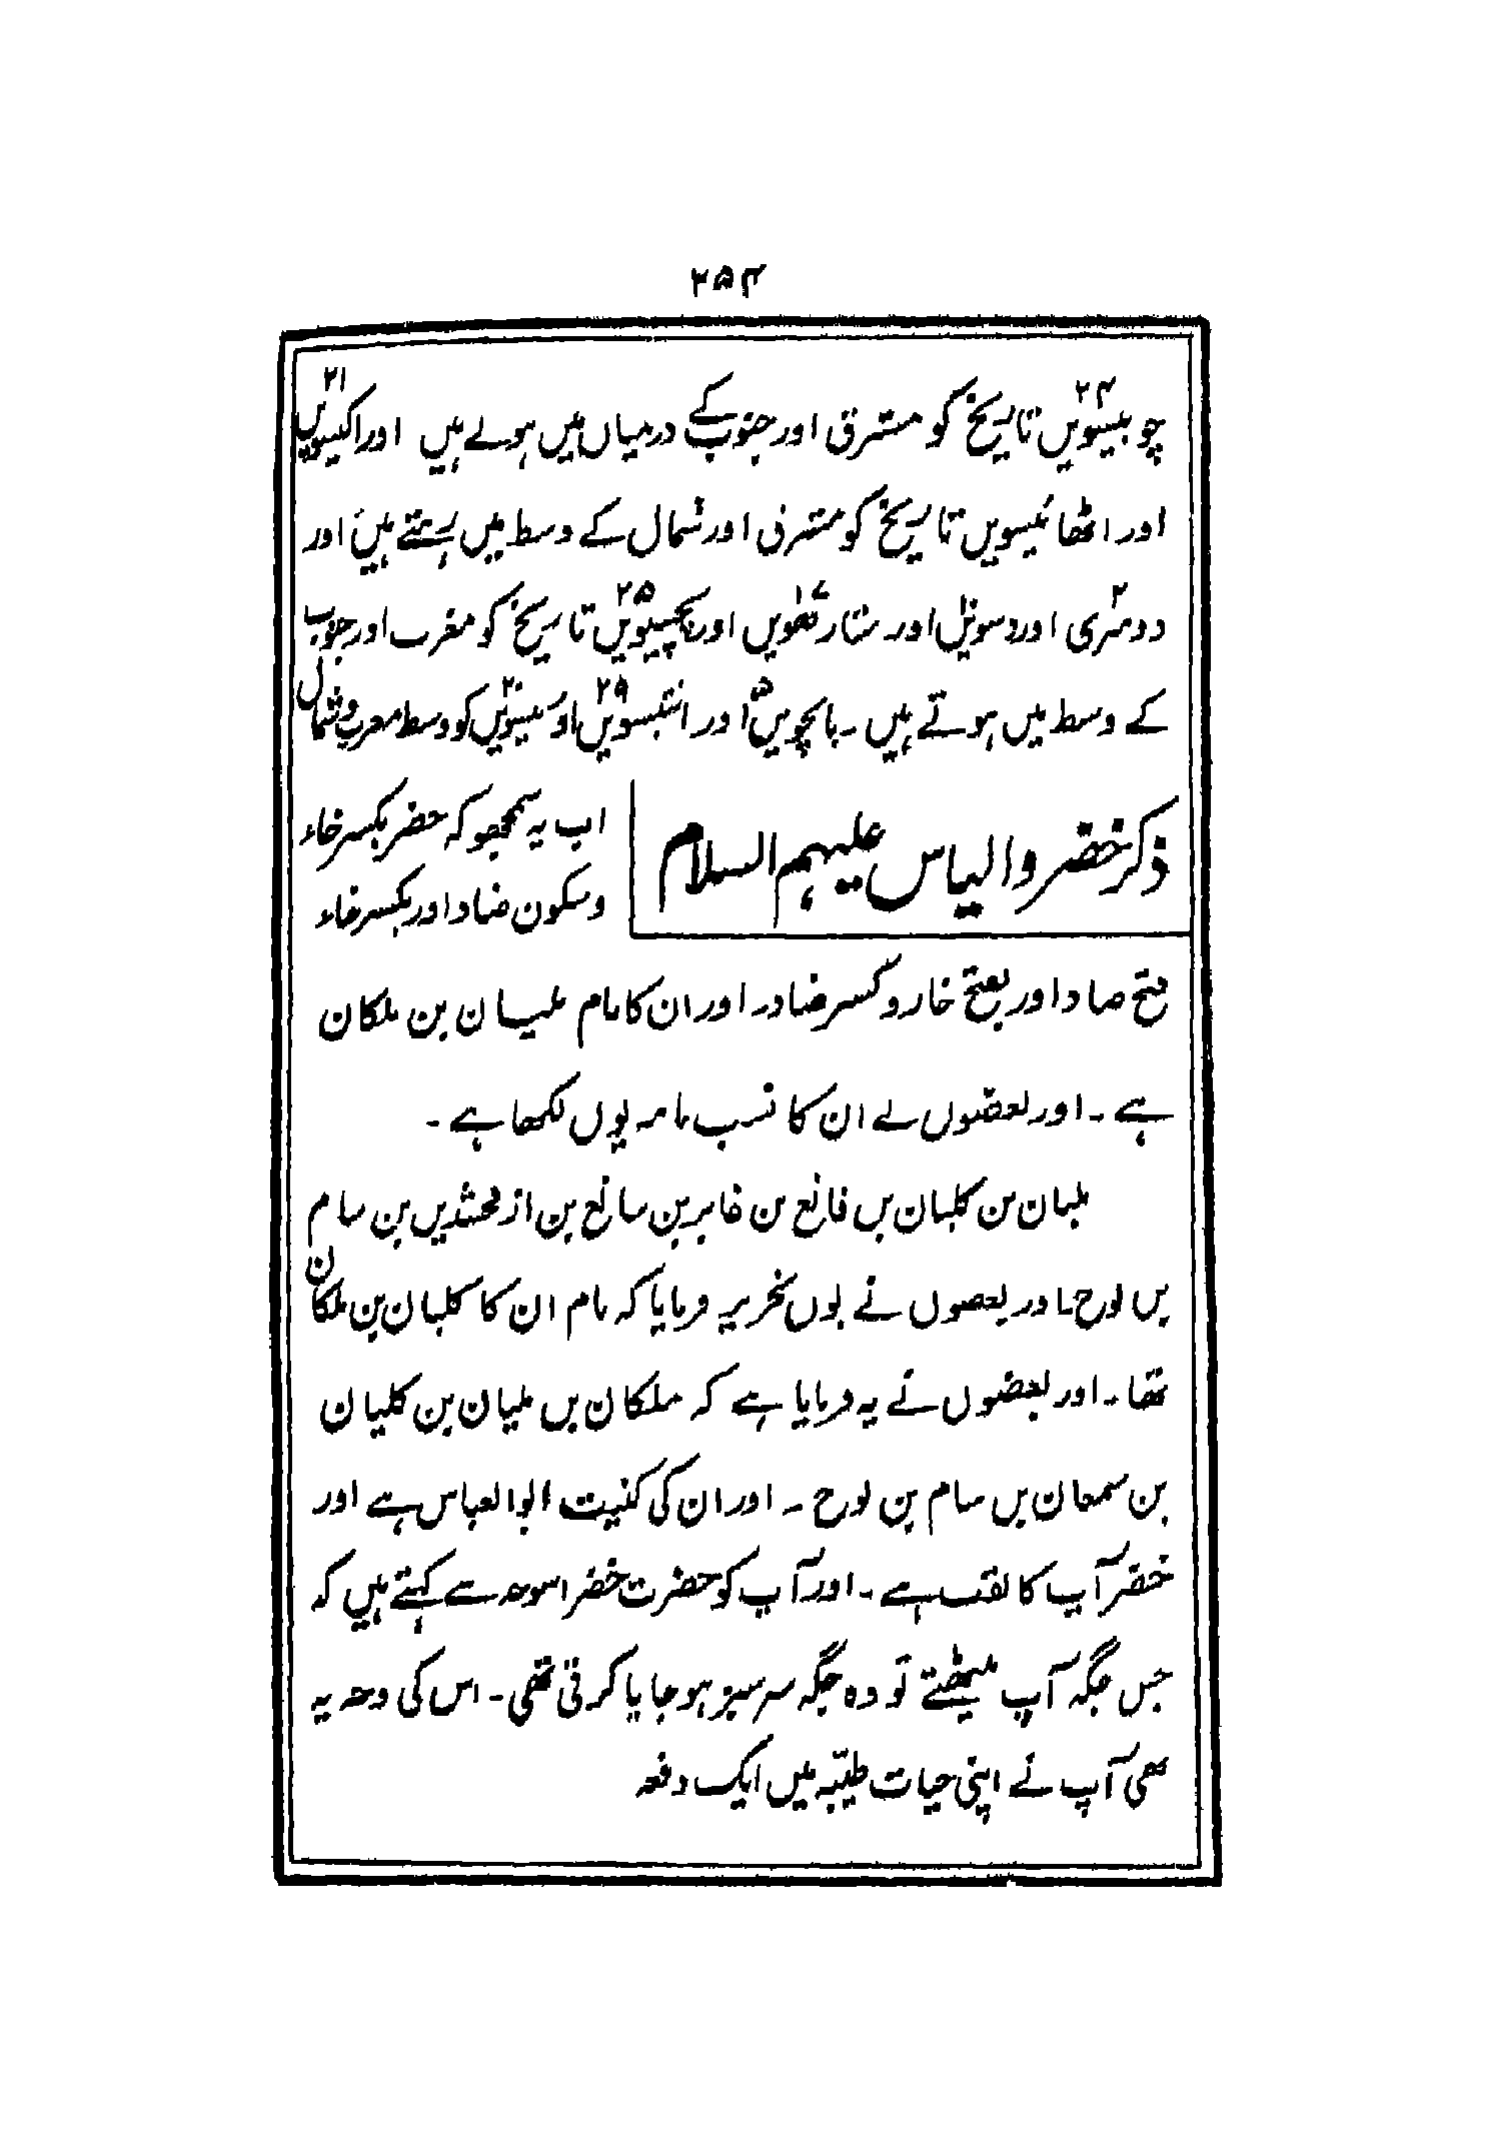 ۲۵۴
چوبیسویں ۲۴ تاریخ کو مشرق اور جنوب کے درمیاں میں ہوتے ہیں اور اکیسویں ۲۱
اور اٹھائیسویں تاریخ کو مشرق اور شمال کے وسط میں رہتے ہیں اور
دوسری ۲ اور دسویں اور ستارتھویں ۱۷ اور پچیسویں ۲۵ تاریخ کو مغرب اور جنوب
کے وسط میں ہوتے ہیں ۔ پانچویں ۵ اور انتیسویں ۲۹ اور بیسویں ۲۰ کو وسط مغرب و شمال
ذکر خضر و الیاس علیہم السلام
اب یہ سمجھو کہ حضر بکسر خاء
و سکون ضاد اور بکسر خاء
فتح ضاد اور بفتح خار و کسر ضاد ۔ اور ان کا نام ملیان بن ملکان
ہے ۔ اور بعضوں نے ان کا نسب نامہ یوں لکھا ہے ۔
ملیان بن کلیان بن فانع بن غابر بن سانع بن ازفخشدیں بن سام
بن نوح ۔ اور بعضوں نے یوں تحریر فرمایا کہ نام ان کا کلیان بن ملکان
تھا ۔ اور بعضوں نے یہ فرمایا ہے کہ ملکان بن ملیان بن کلیان
بن سمعان بن سام بن نوح ۔ اور ان کی کنیت ابو العباس ہے اور
خضر آپ کا لقب ہے ۔ اور آپ کو حضرت خضر اسوجہ سے کہتے ہیں کہ
جس جگہ آپ بیٹھتے تو وہ جگہ سرسبز ہو جایا کرتی تھی ۔ اس کی وجہ یہ
تھی آپ نے اپنی حیات طیّبہ میں ایک دفعہ